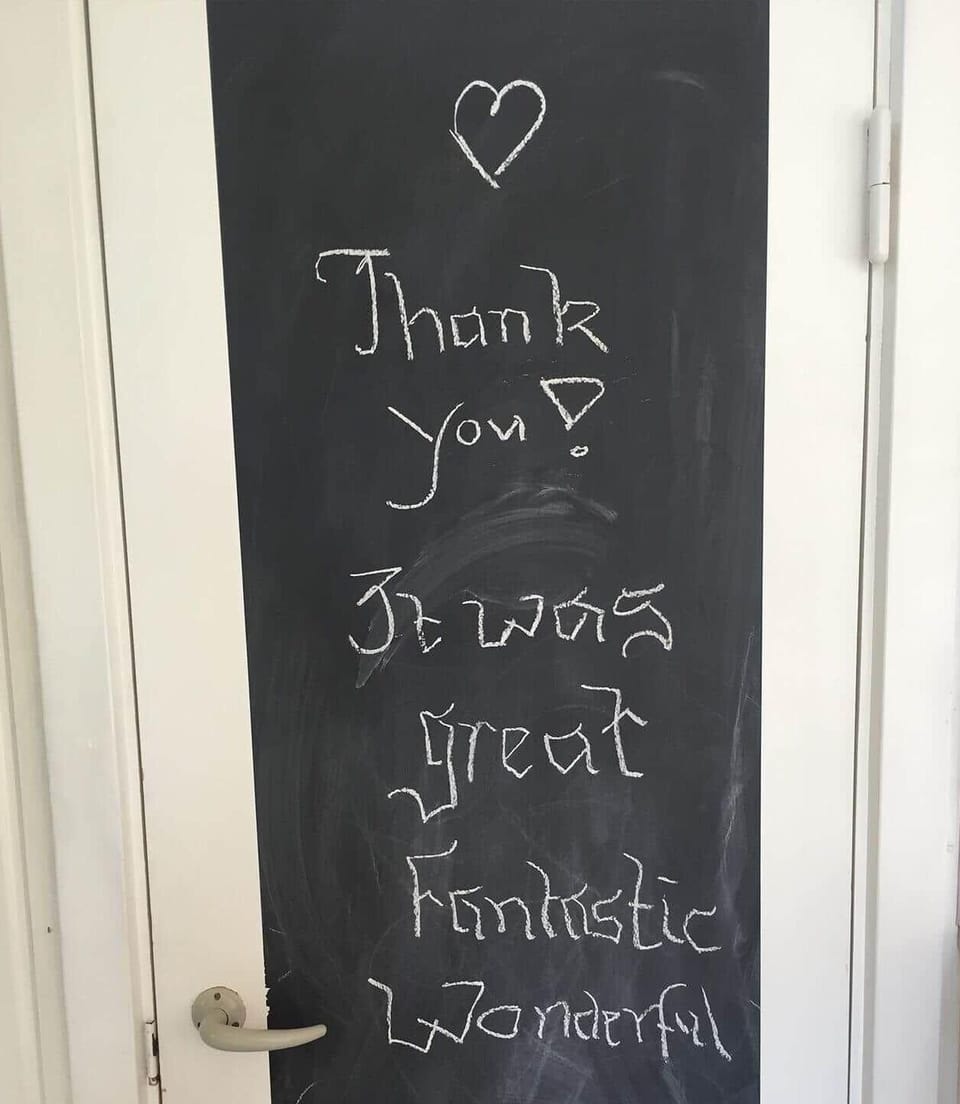 Thank
you!
It was
great
Fantastic
Wonderful